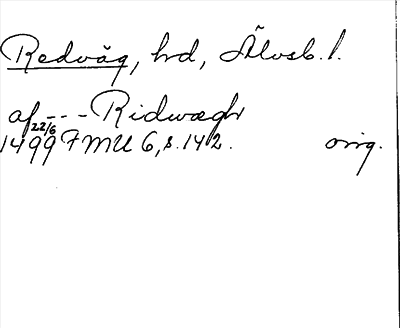 Redväg, hd, Älvsb. l.
af --- Ridwægh
1499 22/6 FMU 6, s. 142. orig.